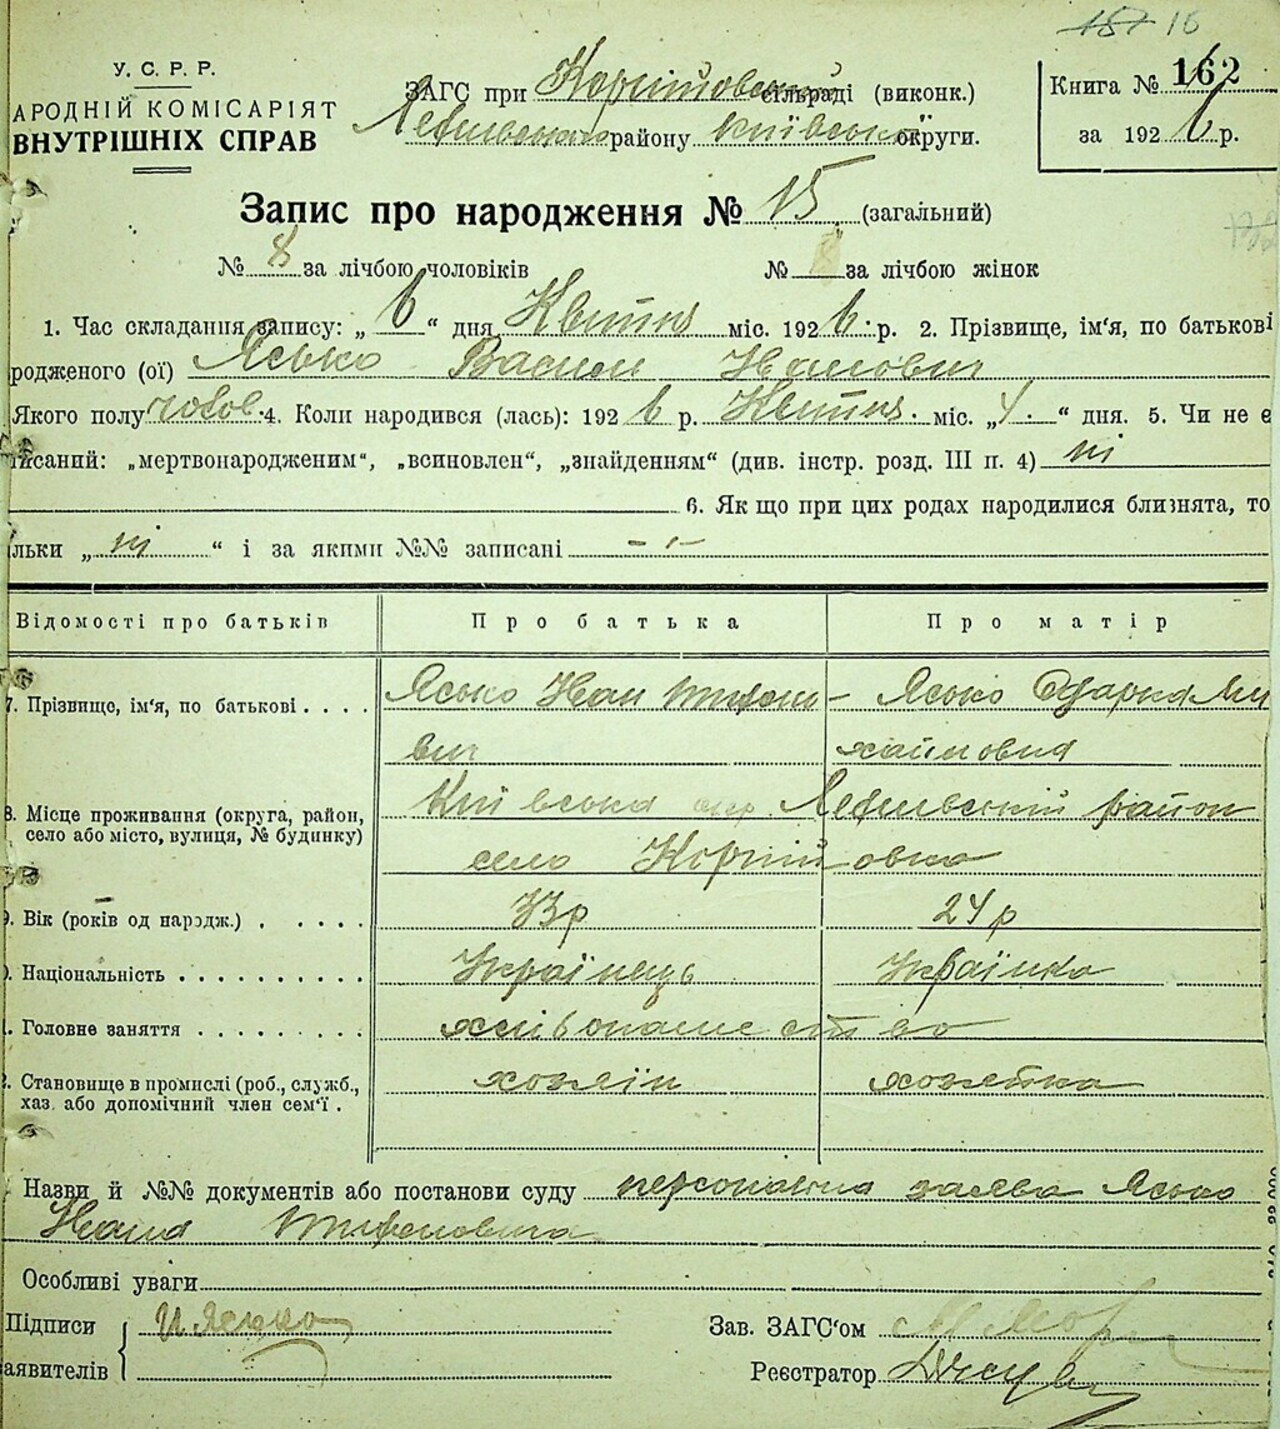 157 16
У. С. Р. Р.
АРОДНІЙ КОМІСАРІЯТ
ВНУТРІШНІХ СПРАВ
ЗАГС при сільраді (виконк.)
району Київської округи.
Книга № 162
за 1926 р.
Запис про народження № 15 (загальний)
№ 8 за лічбою чоловіків № за лічбою жінок
1. Час складання запису: „ 6 “ дня Квітня міс. 1926 р. 2. Прізвище, ім'я, по батькові
родженого (ої) Ясько Васил Іванович
Якого полу чолов. 4. Коли народився (лась): 1926 р. Квітня міс. „ 4. “ дня. 5. Чи не є
писаний: „мертвонародженим“, „всиновлен“, „знайденням“ (див. інстр. розд. III п. 4) ні
6. Як що при цих родах народилися близнята, то
льки „ ні “ і за якими №№ записані - „ -
Відомості про батьків Про батька Про матір
7. Прізвище, ім'я, по батькові . . . . Ясько Іван - Ясько Одарка Ми
вич хайловна
8. Місце проживання (округа, район, Київська окр. район
село або місто, вулиця, № будинку) село Корнійовка
9. Вік (років од народж.) . . . . . 33р 24р
Національність . . . . . . . . . . Українець Українка
Головне заняття . . . . . . . . . хлібопашество
Становище в промислі (роб., служб., хозяїн хозяйка
хаз. або допомічний член сем'ї .
Назви й №№ документів або постанови суду персональна заява Ясько
Івана
Особливі уваги
Підписи И Ясько
аявителів
Зав. ЗАГС'ом
Реєстратор